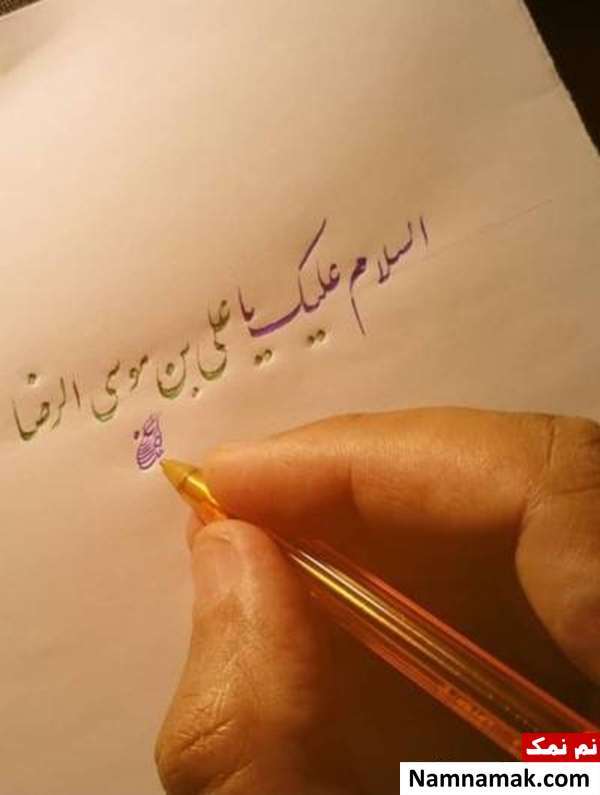 السلام علیک یا علی بن موسی الرضا
نم نمک
Namnamak.com